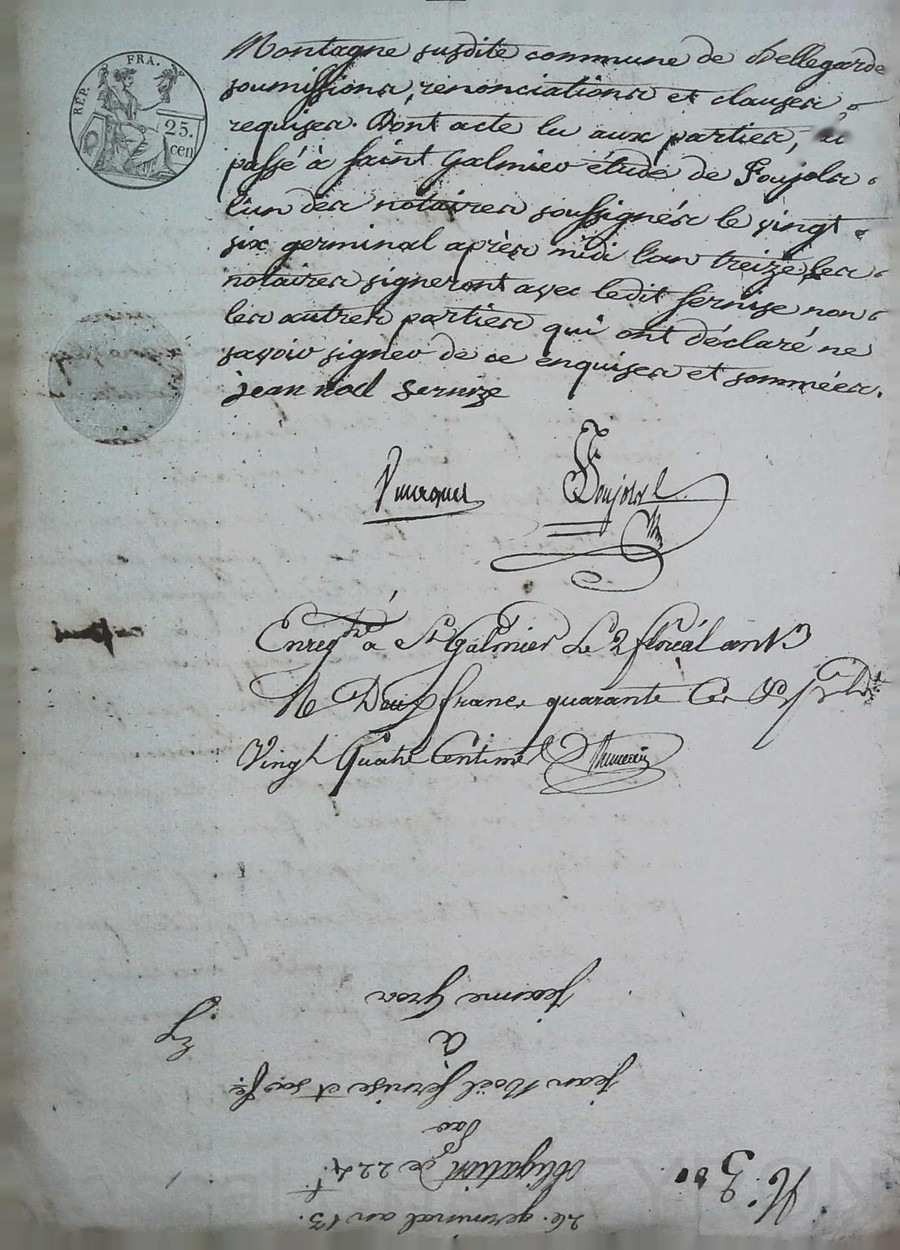 RÉP. FRA.
25.
cen
Montagne susdite commune de Bellegarde
soumissions, renonciations et clauses
requises. Dont acte lu aux parties,
passé à saint Galmier étude de Poujols
l'un des notaires soussignés le vingt
six germinal après midi l'an treize les
notaires signeront avec ledit Servize non
les autres parties qui ont déclaré ne
savoir signer de ce enquises et sommées.
jean noel Servize
Poujols
Enregtré à St Galmier Le 2 floréal an 13
R Deux francs quarante Ces
Vingt Quatre Centimes
26. germinal an 13.
N.° 300
obligation de 224 f.
par
jean Noël Servise et sa fe.
à
jeanne Gros